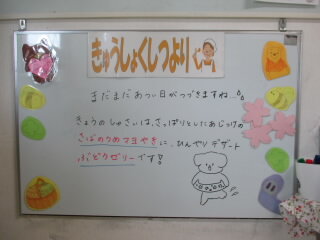 きゅうしょくしつより
まだまだあつい日がつづきますね…
きょうのしゅさいは、さっぱりとしたあじつけの
さばのうめマヨやきに、ひんやりデザート
ぶどうゼリーです!